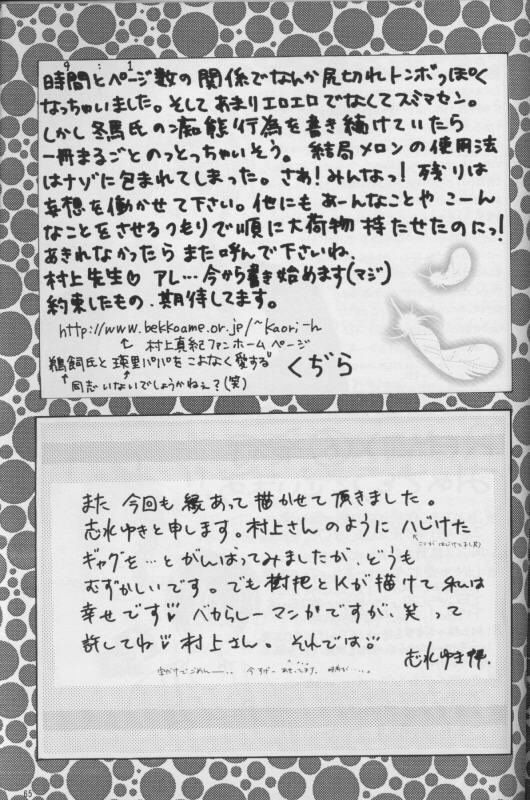 9:1
時間とページ数の関係でなんか尻切れトンボっぽく
なっちゃいました。そしてあまりエロエロでなくてスミマセン。
しかし冬馬氏の痴態行為を書き続けていたら
一冊まるごとのっとっちゃいそう。結局メロンの使用法
はナゾに包まれてしまった。さあ!みんなっ!残りは
妄想を働かせて下さい。他にもあーんなことや こーん
なことをさせるつもりで順に大荷物持たせたのにっ!
あきれなかったら また呼んで下さいね。
村上先生♡ アレ…今から書き始めます(マジ)
約束したもの、期待してます。
http://www.bekkoame.or.jp/~kaori-h
村上真紀ファンホームページ
鵜飼氏と瑛里パパをこよなく愛する
くぢら
同志いないでしょうかねぇ?(笑)
また 今回も縁あって描かせて頂きました。
志水ゆきと申します。村上さんのように ハじけた
ギャグを…と がんばってみましたが、どうも
むずかしいです。でも 樹杷とKが描けて 私は
幸せです♡ バカらしーマンガですが、笑って
許してね♡ 村上さん。それでは
志水ゆき拝
65